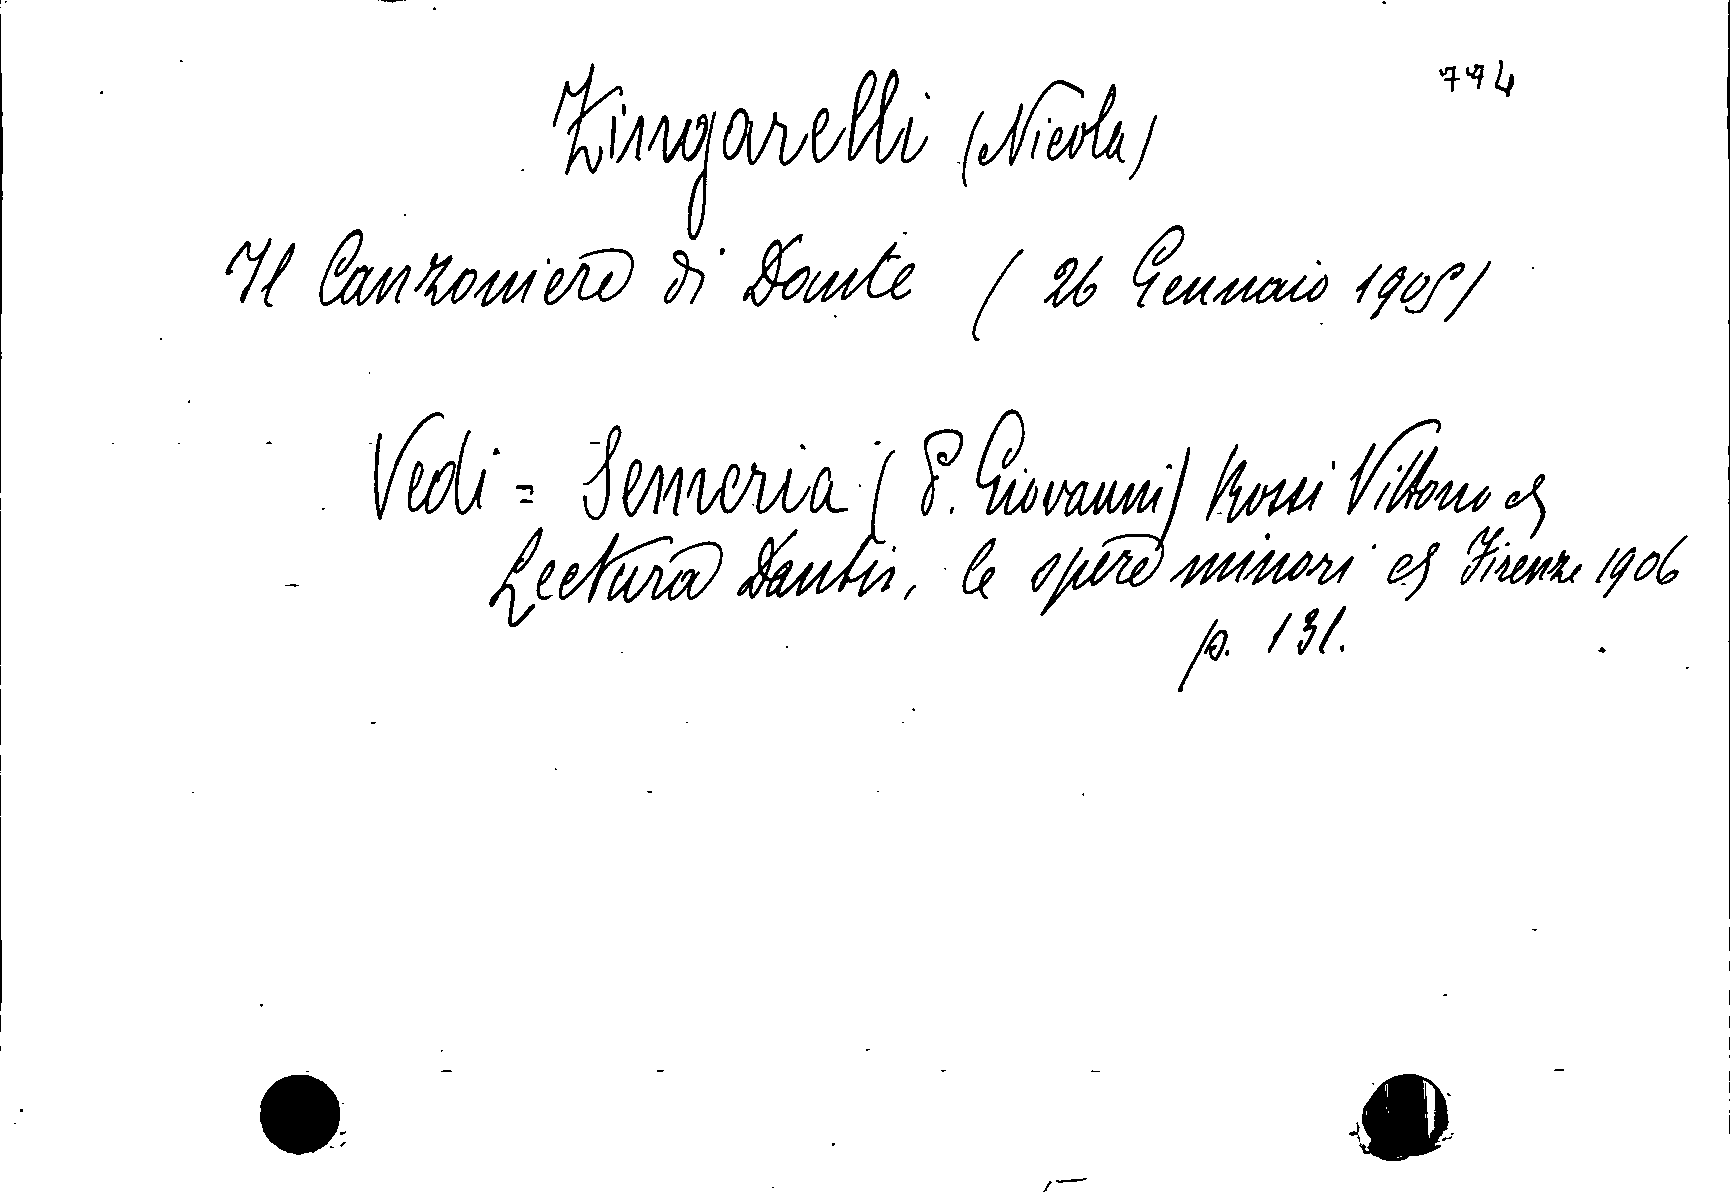 774
Zingarelli (Nicola)
Il Canzoniere di Dante (26 Gennaio 1905)
Vedi = Semeria (P. Giovanni) Rossi Vittorio ecc
Lectura Dantis, le opere minori ecc Firenze 1906
p. 131.